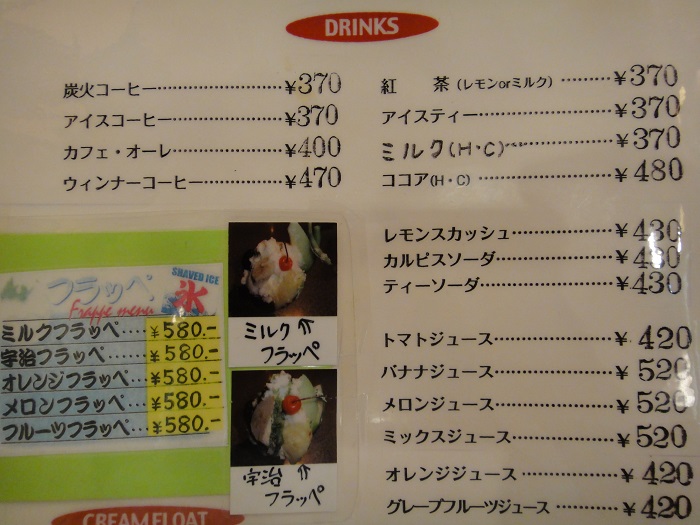 DRINKS
炭火コーヒー……………………¥370
アイスコーヒー…………………¥370
カフェ・オーレ…………………¥400
ウィンナーコーヒー……………¥470
紅　茶(レモンorミルク)………¥370
アイスティー……………………¥370
ミルク(H・C)……………………¥370
ココア(H・C)……………………¥480
レモンスカッシュ………………¥430
カルピスソーダ…………………¥430
ティーソーダ……………………¥430
トマトジュース…………………¥420
バナナジュース…………………¥520
メロンジュース…………………¥520
ミックスジュース………………¥520
オレンジジュース………………¥420
グレープフルーツジュース……¥420
フラッペ
SHAVED ICE
氷
Frappe menu
ミルクフラッペ…¥580.-
宇治フラッペ…¥580.-
オレンジフラッペ…¥580.-
メロンフラッペ…¥580.-
フルーツフラッペ…¥580.-
ミルク⇑
フラッペ
宇治⇑
フラッペ
CREAM FLOAT